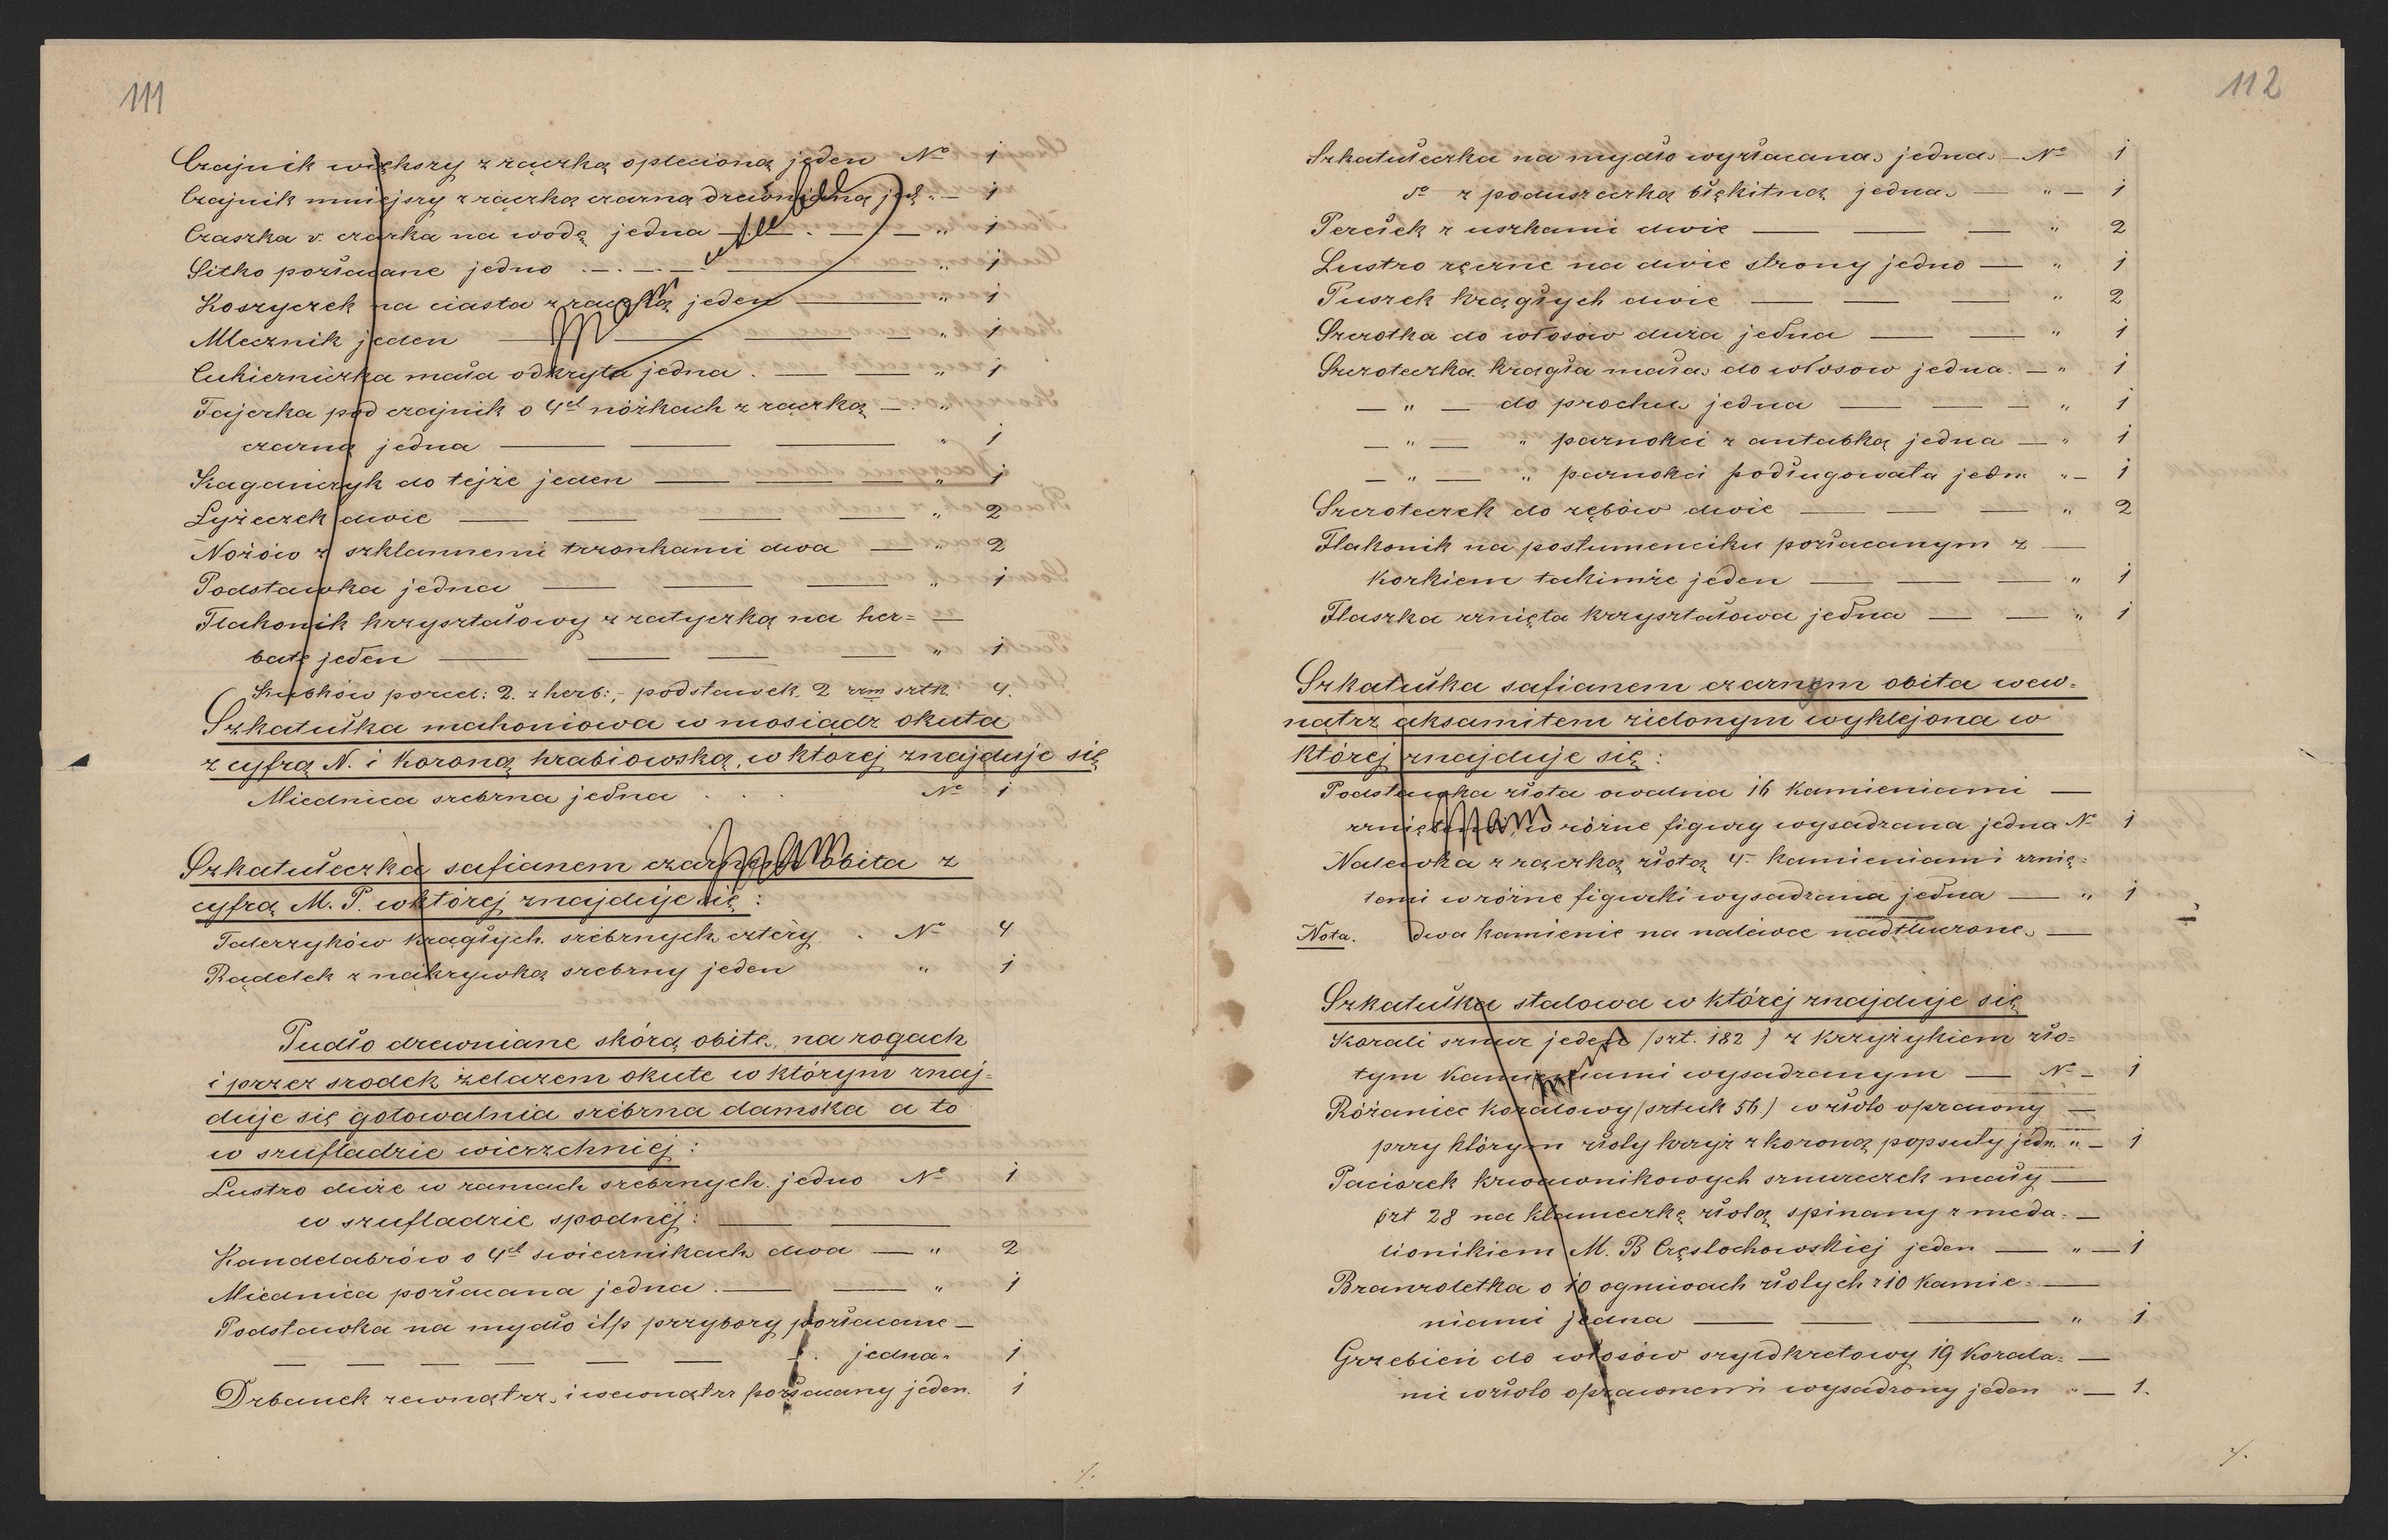 111
Czajnik większy z rączką oplecioną jeden Nº 1
Czajnik mniejszy z rączką czarną drewnianą jed. " — 1
Czaszka v. czarka na wodę jedna — " 1
Sitko pozłacane jedno — " 1
Koszyczek na ciasta z rączką jeden — " 1
Mlecznik jeden — " 1
Cukierniczka mała odkryta jedna. — " 1
Fajerka pod czajnik o 4ch nóżkach z rączką — "
czarną jedna — " 1
Kagańczyk do tejże jeden — " 1
Łyżeczek dwie — " 2
Nożów z szklannemi trzonkami dwa — " 2
Podstawka jedna — " 1
Flakonik krzyształowy z zatyczką na her= —
batę jeden — " 1
Kubków porcel: 2. z herb:, podstawek 2 rzm sztk 4.
Szkatułka mahoniowa w mosiądz okuta
z cyfrą N. i Koroną hrabiowską, w której znajduje się
Miednica srebrna jedna . . . Nº 1
Szkatułeczka safianem czarnem obita z
cyfrą M. P. w której znajduje się:
Talerzyków krągłych srebrnych cztéry . Nº 4
Rądelek z nakrywką srebrny jeden " 1
Pudło drewniane skórą obite, na rogach
i przez srodek żelazem okute w którym znaj=
duje się gotowalnia srébrna damska a to
w szufladzie wierzchniej:
Lustro duże w ramach srebrnych jedno Nº 1
w szufladzie spodnéj: —
Kandelabrów o 4ch swiecznikach dwa — " 2
Miednica pozłacana jedna. — " 1
Podstawka na mydło itp przybory pozłacane —
— — — — — — jedna " 1
Dzbanek zewnątrz i wewnątrz pozłacany jeden. 1
./.
112
Szkatułeczka na mydło wyzłacana jedna — Nº 1
do z poduszeczką błękitną jedna — " — 1
Perełek z uszkami dwie — " 2
Lustro ręczne na dwie strony jedno — " 1
Puszek krągłych dwie — " 2
Szczotka do włosów duża jedna — " 1
Szczoteczka krągła mała do włosow jedna. — " 1
— " — do prochu jedna — " 1
— " — " parnokci z antabką jedna — " 1
— " — " parnokci podługowata jedn. " — 1
Szczoteczek do zębów dwie — " 2
Flakonik na postumenciku pozłacanym z —
Korkiem takimże jeden — " 1
Flaszka rznięta krzyształowa jedna — " 1
Szkatułka safianem czarnym obita wew=
nątrz aksamitem zielonym wyklejona w
której znajduje się:
Podstawka złota owalna 16 Kamieniami —
rzniętemi, w różne figury wysadzana jedna Nº 1
Nalewka z rączką złotą 4– kamieniami rznię=
temi w różne figurki wysadzana jedna — " 1
Nota. dwa kamienie na nalewce nadtłuczone. —
Szkatułka stalowa w której znajduje się
Korali sznur jeden (szt. 182) z Krzyżykiem zło=
tym Kamieniami wysadzanym — Nº – 1
Różaniec Koralowy (sztuk 56) w złoto oprawny —
przy którym złoty krzyż z koroną popsuty jedn. " – 1
Paciorek krwawnikowych sznureczek mały —
szt 28 na klameczkę złotą spinany z meda= —
lionikiem M. B Częstochowskiej jeden — " — 1
Branzoletka o 10 ogniwach złotych z 10 Kamie= —
niami jedna — " 1
Grzebień do włosów szyldkretowy 19 Korala= —
mi w złoto oprawnemi wysadzony jeden " — 1.
./.